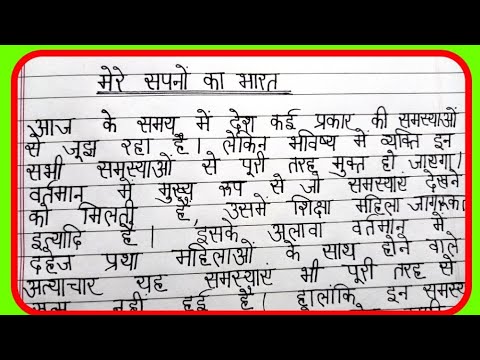 मेरे सपनों का भारत
आज के समय में देश कई प्रकार की समस्याओं
से जूझ रहा है। लेकिन भविष्य में व्यक्ति इन
सभी समस्याओं से पूरी तरह मुक्त हो जायगा।
वर्तमान में मुख्य रूप से जो समस्याएं देखने
को मिलती है, उसमें शिक्षा महिला जागरूकता
इत्यादि है। इसके अलावा वर्तमान में
दहेज प्रथा महिलाओं के साथ होने वाले
अत्याचार यह समस्याएं भी पूरी तरह से
नहीं हुई है। हालांकि इन